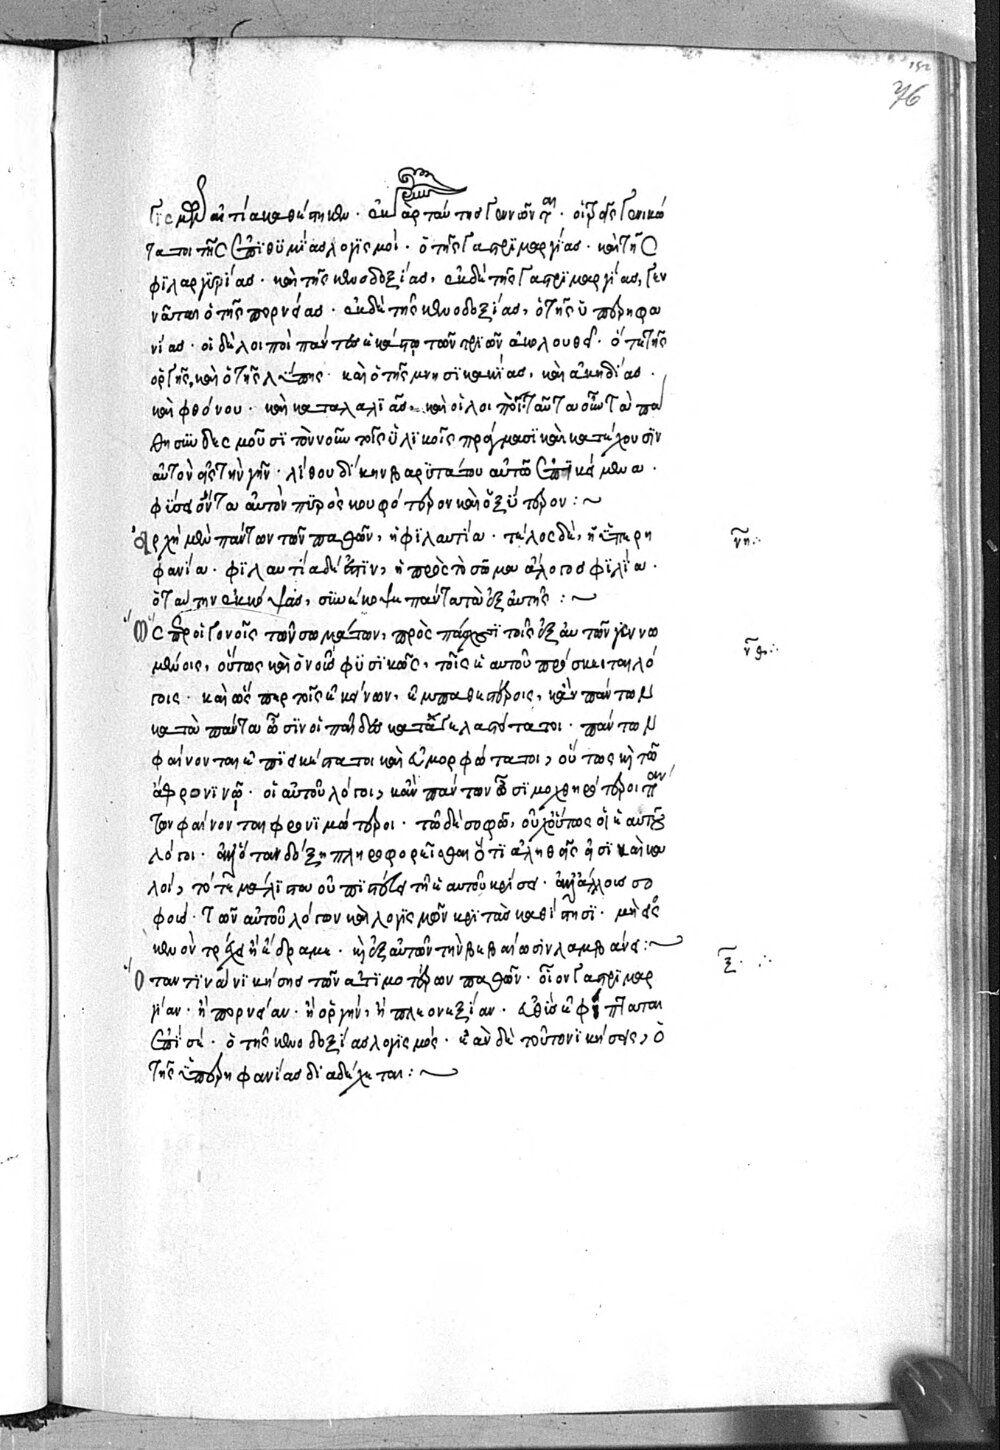 152
76
γίς μὲν αἰτία καθέστηκεν· ἐκ γὰρ ταύτης γεννῶνται οἱ τρεῖς γενικώ
τατοι τῆς ἐπιθυμίας λογισμοί· ὁ τῆς γαστριμαργίας· καὶ τῆς
φιλαργυρίας· καὶ τῆς κενοδοξίας, ἐκ δὲ τῆς γαστριμαργίας, γεν
νᾶται ὁ τῆς πορνείας· ἐκ δὲ τῆς κενοδοξίας, ὁ τῆς ὑπερηφα
νίας· οἱ δὲ λοιποὶ πάντες ἑκάστῳ τῶν τριῶν ἀκολουθεῖ· ὅ τε τῆς
ὀργῆς, καὶ ὁ τῆς λύπης· καὶ ὁ τῆς μνησικακίας, καὶ ἀκηδίας·
καὶ φθόνου· καὶ καταλαλιᾶς· καὶ οἱ λοιποί· ταῦτα οὖν τὰ πά
θη συνδεσμοῦσι τὸν νοῦν τοῖς ὑλικοῖς πράγμασι καὶ κατέχουσιν
αὐτὸν εἰς τὴν γῆν· λίθου δίκην βαρυτάτου αὐτῶ ἐπικείμενα·
φύσει ὄντα αὐτὸν πυρὸς κουφότερον καὶ ὀξύτερον :~
Ἀρχὴ μὲν πάντων τῶν παθῶν, ἡ φιλαυτία· τέλος δὲ, ἡ ὑπερη
νη
φανία· φιλαυτία δέ ἐστιν, ἡ πρὸς τὸ σῶμα ἄλογος φιλία·
ὁ ταύτην ἐκκόψας, συνέκοψε πάντα τὰ ἐξ αὐτῆς :~
Ὥσπερ οἱ γονεῖς τῶν σωμάτων, πρὸς πάσχει τοῖς ἐξ αὐτῶν γεννω
νθ
μένοις, οὕτως καὶ ὁ νοῦς φυσικῶς, τοῖς ἑαυτοῦ πρόσκειται λό
γοις· καὶ ὥσπερ τοῖς ἐκείνων, ἐμπαθεστέροις, κἂν πάντων
κατὰ πάντα ὦσιν οἱ παῖδες καταγελαστότατοι· πάντων
φαίνονται ἐπιεικέστατοι καὶ εὐμορφώτατοι, οὕτως καὶ τῶ
ἄφρονι νῷ· οἱ αὐτοῦ λόγοι, κἂν πάντων ὦσι μοχθηρότεροι πάν
των φαίνονται φρονιμώτεροι· τῶ δὲ σοφῶ, οὐχ οὕτως οἱ ἑαυτοῦ
λόγοι· ἀλλ' ὅταν δόξῃ πληροφορεῖσθαι ὅτι ἀληθεῖς εἰσὶ καὶ κα
λοί, τότε μάλιστα οὐ πιστεύει τῆ ἑαυτοῦ κρίσει· ἀλλ' ἄλλους σο
φοὺς· τῶν αὐτοῦ λόγων καὶ λογισμῶν κριτὰς καθίστησι· μὴ εἰς
κενὸν τρέχει ἢ ἔδραμε· καὶ ἐξ αὐτῶν τὴν βεβαίωσιν λαμβάνει :~
Ὅταν τινὰ νικήσῃς τῶν ἀτιμοτέρων παθῶν· οἷον γαστριμαρ
ξ
γίαν· ἢ πορνείαν· ἢ ὀργήν, ἢ πλεονεξίαν· εὐθὺς ἐφίπταται
ἐπὶ σέ· ὁ τῆς κενοδοξίας λογισμός· ἐὰν δὲ τοῦτον νικήσῃς, ὁ
τῆς ὑπερηφανίας διαδέχεται :~